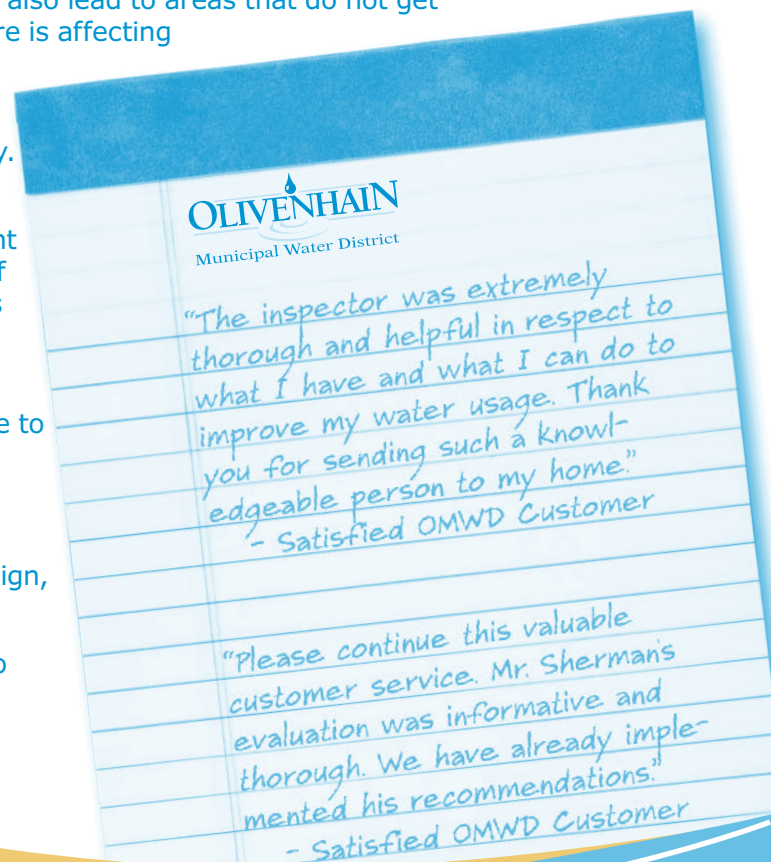 also lead to areas that do not get
re is affecting
y.
nt
f
s
e to
ign,
o
OLIVENHAIN
Municipal Water District
“The inspector was extremely
thorough and helpful in respect to
what I have and what I can do to
improve my water usage. Thank
you for sending such a knowl-
edgeable person to my home.”
- Satisfied OMWD Customer
“Please continue this valuable
customer service. Mr. Sherman's
evaluation was informative and
thorough. We have already imple-
mented his recommendations.”
- Satisfied OMWD Customer